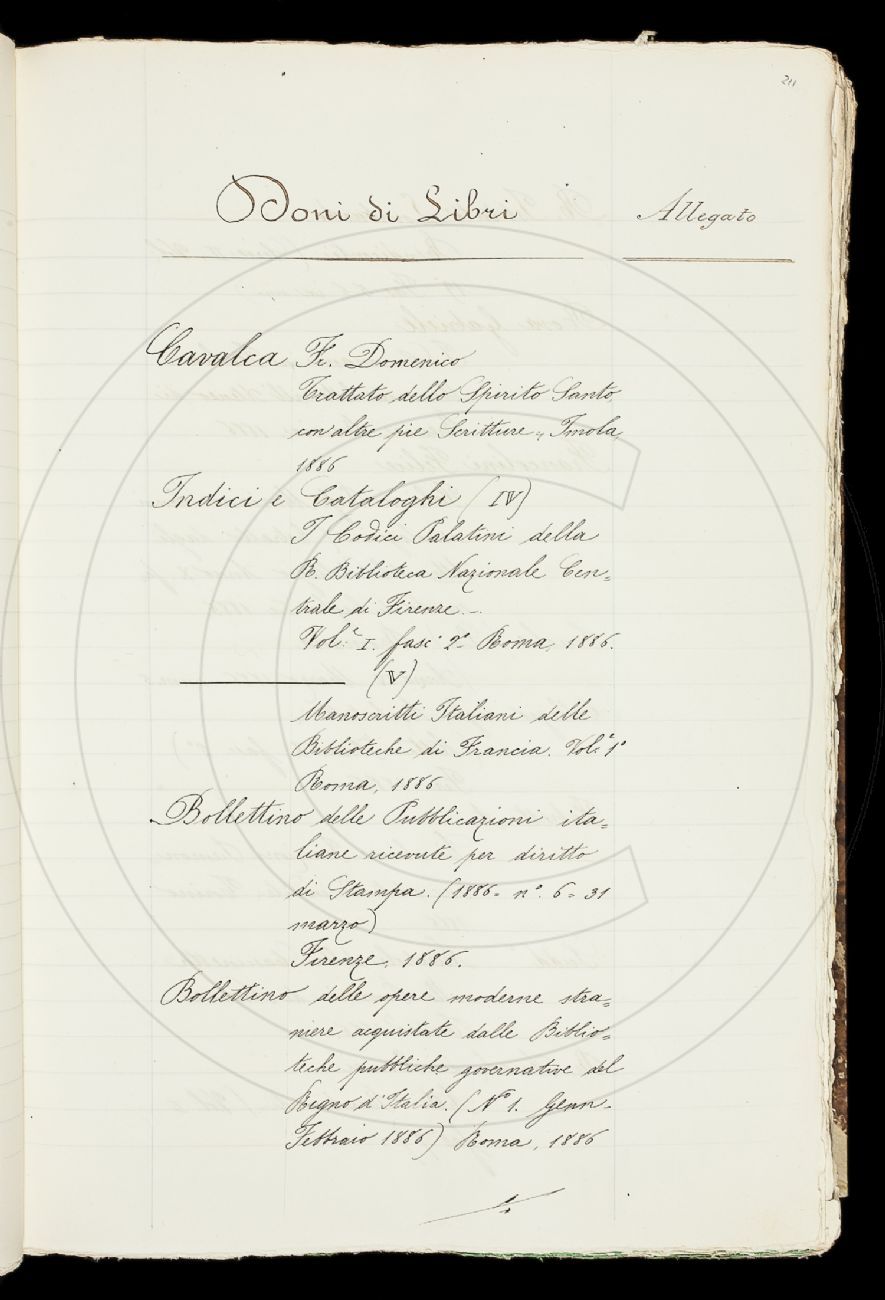 211
Doni di Libri
Allegato
Cavalca Fr. Domenico
Trattato dello Spirito Santo
con altre pie Scritture „ Imola,
1886
Indici e Cataloghi (IV)
I Codici Palatini della
R. Biblioteca Nazionale Cen=
trale di Firenze. –
Vol.e I. fasc.o 2o Roma, 1886.
(V)
Manoscritti Italiani delle
Biblioteche di Francia. Vol.e 1o
Roma, 1886
Bollettino delle Pubblicazioni ita=
liane ricevute per diritto
di Stampa. (1886 = no. 6 = 31
marzo)
Firenze, 1886.
Bollettino delle opere moderne stra=
niere acquistate dalle Biblio=
teche pubbliche governative del
Regno d'Italia. (No 1. Genn-
Febbraio 1886) Roma, 1886